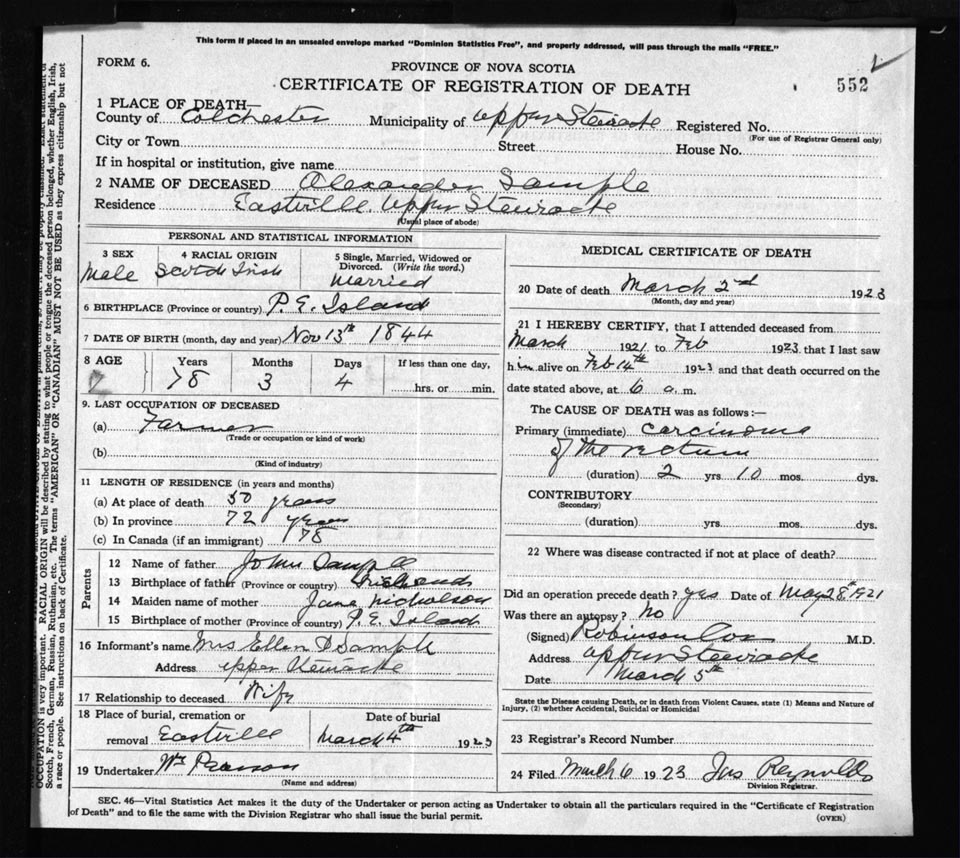 This form if placed in an unsealed envelope marked "Dominion Statistics Free", and properly addressed, will pass through the mails "FREE."
FORM 6.
PROVINCE OF NOVA SCOTIA
CERTIFICATE OF REGISTRATION OF DEATH
552
1 PLACE OF DEATH—
County of Colchester Municipality of Upper Stewiacke Registered No.
(For use of Registrar General only)
City or Town Street House No.
If in hospital or institution, give name
2 NAME OF DECEASED Alexander Sample
Residence Eastville, Upper Stewiacke
(Usual place of abode)
PERSONAL AND STATISTICAL INFORMATION
3 SEX
Male
4 RACIAL ORIGIN
Scotch Irish
5 Single, Married, Widowed or
Divorced. (Write the word.)
Married
6 BIRTHPLACE (Province or country) P. E. Island
7 DATE OF BIRTH (month, day and year) Nov 13th 1844
8 AGE
Years Months Days If less than one day,
78 3 4 hrs. or min.
9. LAST OCCUPATION OF DECEASED
(a) Farmer
(Trade or occupation or kind of work)
(b)
(Kind of industry)
11 LENGTH OF RESIDENCE (in years and months)
(a) At place of death 50 years
(b) In province 72 years
(c) In Canada (if an immigrant) 78
Parents
12 Name of father John Sample
13 Birthplace of father (Province or country) Ireland
14 Maiden name of mother Jane Nicholson
15 Birthplace of mother (Province or country) P. E. Island
16 Informant's name Mrs Ellen D Sample
Address Upper Stewiacke
17 Relationship to deceased Wife
18 Place of burial, cremation or
removal Eastville
Date of burial
March 4th 1923
19 Undertaker Wm
(Name and address)
MEDICAL CERTIFICATE OF DEATH
20 Date of death March 2nd 1923
(Month, day and year)
21 I HEREBY CERTIFY, that I attended deceased from
March 1921 to Feb 1923 that I last saw
him alive on Feb 14th 1923 and that death occurred on the
date stated above, at 6 a.m.
The CAUSE OF DEATH was as follows:—
Primary (immediate) Carcinoma
of the rectum
(duration) 2 yrs. 10 mos. dys.
CONTRIBUTORY
(Secondary)
(duration) yrs. mos. dys.
22 Where was disease contracted if not at place of death?
Did an operation precede death? yes Date of May 28th 1921
Was there an autopsy? No
(Signed) Robinson Cox M.D.
Address Upper Stewiacke
Date March 5th
State the Disease causing Death, or in death from Violent Causes, state (1) Means and Nature of
Injury, (2) whether Accidental, Suicidal or Homicidal
23 Registrar's Record Number
24 Filed March 6 1923 Jas Reynolds
Division Registrar.
SEC. 46—Vital Statistics Act makes it the duty of the Undertaker or person acting as Undertaker to obtain all the particulars required in the "Certificate of Registration
of Death" and to file the same with the Division Registrar who shall issue the burial permit.
(OVER)
OCCUPATION is very important. RACIAL ORIGIN will be described by stating to what people or tongue the deceased person belonged, whether English, Irish,
Scotch, French, German, Russian, Ruthenian, etc. The terms "AMERICAN" OR "CANADIAN" MUST NOT BE USED as they express citizenship but not
a race or people. See instructions on back of Certificate.